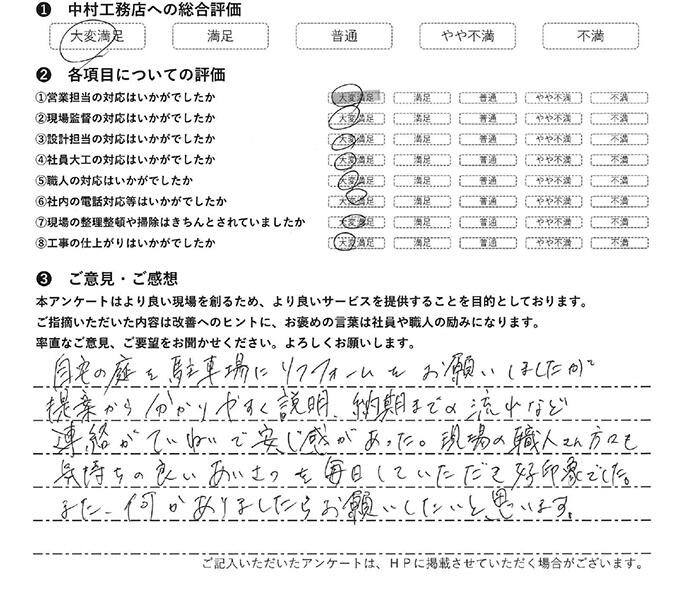 ❶ 中村工務店への総合評価
大変満足 満足 普通 やや不満 不満
❷ 各項目についての評価
①営業担当の対応はいかがでしたか 大変満足 満足 普通 やや不満 不満
②現場監督の対応はいかがでしたか 大変満足 満足 普通 やや不満 不満
③設計担当の対応はいかがでしたか 大変満足 満足 普通 やや不満 不満
④社員大工の対応はいかがでしたか 大変満足 満足 普通 やや不満 不満
⑤職人の対応はいかがでしたか 大変満足 満足 普通 やや不満 不満
⑥社内の電話対応等はいかがでしたか 大変満足 満足 普通 やや不満 不満
⑦現場の整理整頓や掃除はきちんとされていましたか 大変満足 満足 普通 やや不満 不満
⑧工事の仕上がりはいかがでしたか 大変満足 満足 普通 やや不満 不満
❸ ご意見・ご感想
本アンケートはより良い現場を創るため、より良いサービスを提供することを目的としております。
ご指摘いただいた内容は改善へのヒントに、お褒めの言葉は社員や職人の励みになります。
率直なご意見、ご要望をお聞かせください。よろしくお願いします。
自宅の庭を駐車場にリフォームをお願いしましたが
提案から分かりやすく説明、納期までの流れなど
連絡がていねいで安心感があった。現場の職人さん方々も
気持ちの良いあいさつを毎日していただき好印象でした。
また、何かありましたらお願いしたいと思います。
ご記入いただいたアンケートは、HPに掲載させていただく場合がございます。